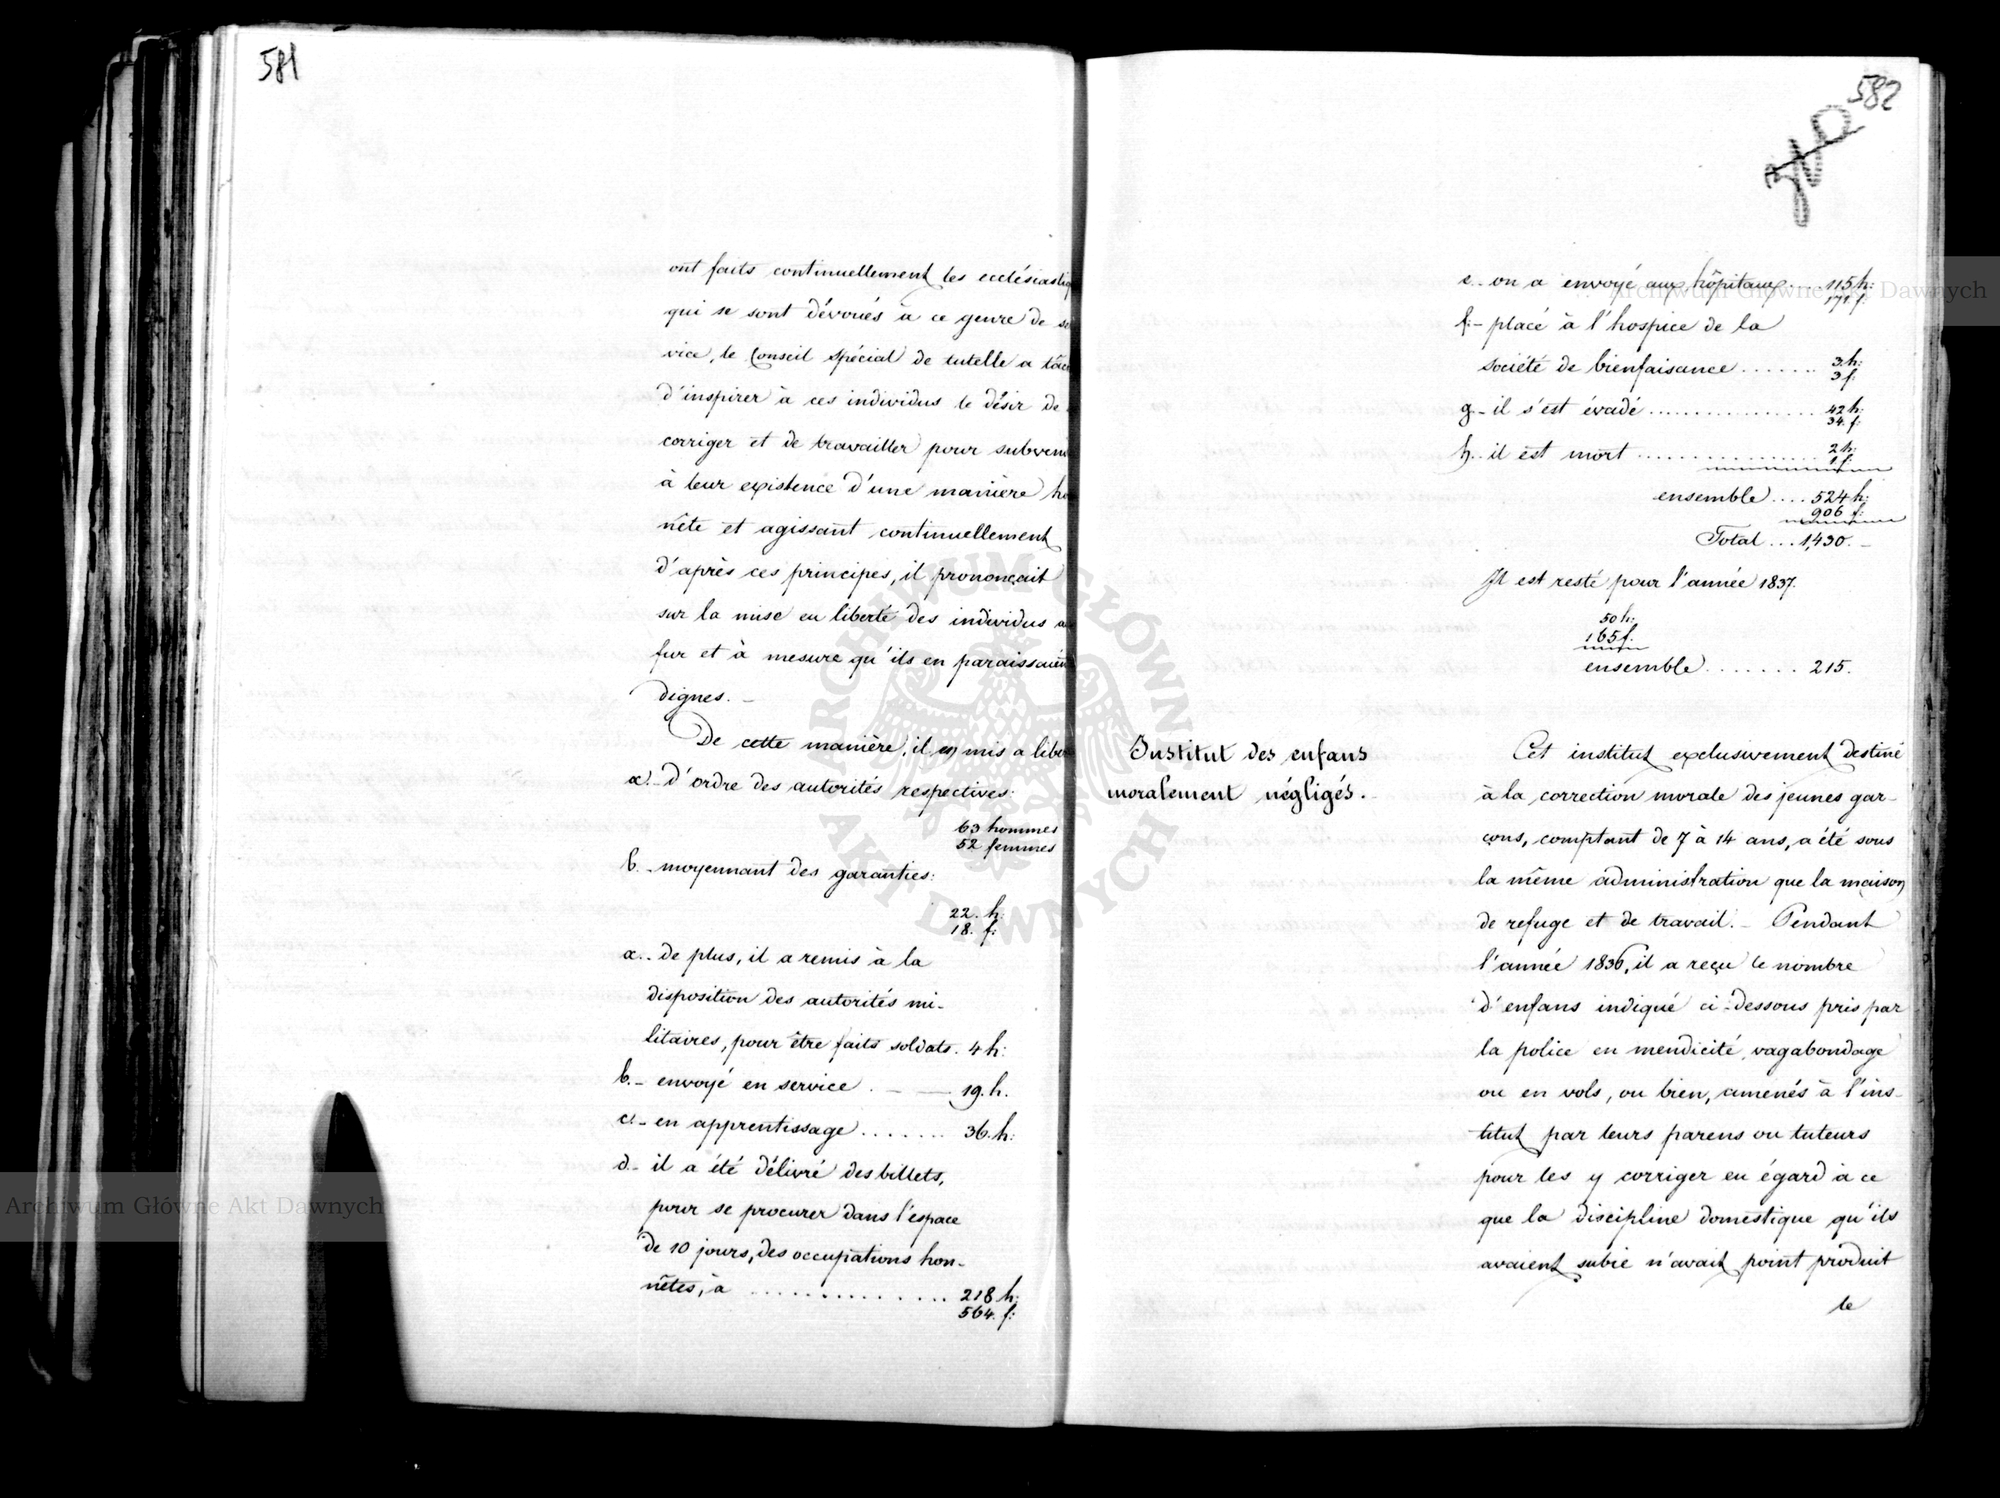 581
ont faits continuellement les ecclésiastiq
qui se sont dévoués à ce genre de se
vice, le Conseil spécial de tutelle a tâc
d'inspirer à ces individus le désir de
corriger et de travailler pour subveni
à leur existence d'une manière ho
nête et agissant continuellement
d'après ces principes, il prononçait
sur la mise en liberté des individus a
fur et à mesure qu'ils en paraissaien
dignes. —
De cette manière, il mis a liber
a.- d'ordre des autorités respectives:
63 hommes
52 femmes
b.- moyennant des garanties:
22. h:
18. f:
a.- de plus, il a remis à la
disposition des autorités mi-
litaires, pour être faits soldats. 4 h:
b.- envoyé en service . — — 19. h.
c.- en apprentissage ....... 36. h:
d.- il a été délivré des billets,
pour se procurer dans l'espace
de 10 jours, des occupations hon-
nêtes, à .............. 218 h:
564. f:
582
e.- on a envoyé aux hôpitaux.... 115 h:
171 f.
f.- placé à l'hospice de la
société de bienfaisance ...... 3. h:
3 f.
g.- il s'est évadé ................ 42 h:
34. f:
h.- il est mort ................. 2 h:
1 f:
ensemble .... 524 h:
906 f:
Total ... 1,430. —
Il est resté pour l'année 1837.
50 h:
165 f.
ensemble ....... 215.
Institut des enfans
moralement négligés. -
Cet institut exclusivement destiné
à la correction morale des jeunes gar-
çons, comptant de 7 à 14 ans, a été sous
la même administration que la maison
de refuge et de travail. - Pendant
l'année 1836, il a reçu le nombre
d'enfans indiqué ci-dessous pris par
la police en mendicité, vagabondage
ou en vols, ou bien, amenés à l'ins-
titut par leurs parens ou tuteurs
pour les y corriger eu égard à ce
que la discipline domestique qu'ils
avaient subie n'avait point produit
le
Archiwum Główne Akt Dawnych
Archiwum Główne Akt Dawnych
ARCHIWUM GŁÓWNE AKT DAWNYCH